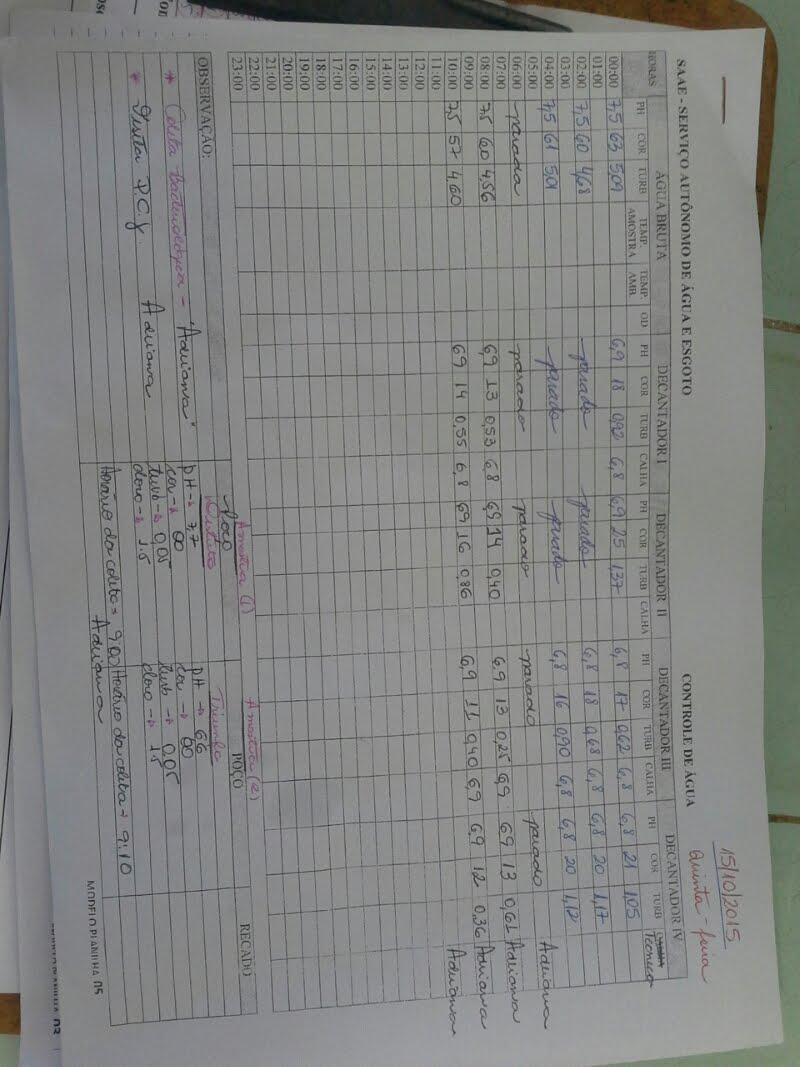 15/10/2015
Quinta-feira
SAAE - SERVIÇO AUTÔNOMO DE ÁGUA E ESGOTO CONTROLE DE ÁGUA
ÁGUA BRUTA DECANTADOR I DECANTADOR II DECANTADOR III DECANTADOR IV
HORAS PH COR TURB TEMP. AMOSTRA TEMP. AMB OD PH COR TURB CALHA PH COR TURB CALHA PH COR TURB CALHA PH COR TURB Técnico
00:00 7,5 63 5,09 6,9 18 0,92 6,8 6,9 25 1,37 6,8 17 0,62 6,8 6,8 21 1,05
01:00
02:00 7,5 60 4,68 parado parado 6,8 18 0,68 6,8 6,8 20 1,17
03:00
04:00 7,5 61 5,01 parado parado 6,8 16 0,90 6,8 6,8 20 1,12
05:00
06:00 parada parado parado parado parado Adriana
07:00
08:00 7,5 60 4,56 69 13 0,53 6,8 69 14 0,40 6,9 13 0,25 6,9 69 13 0,61 Adriana
09:00 Adriana
10:00 7,5 57 4,60 69 14 0,55 6,8 69 16 0,86 6,9 11 0,40 69 6,9 12 0,36 Adriana
11:00
12:00
13:00
14:00
15:00
16:00
17:00
18:00
19:00
20:00
21:00
22:00
23:00
Amostra (1) Amostra (2)
OBSERVAÇÃO: Poço POÇO RECADO
* Coleta bacteriológica - "Adriana" Triunfo
pH → 7,7 pH → 6,6
cor → 00 cor → 00
* Adriana turb → 0,05 turb → 0,05
cloro → 1.5 cloro → 1.5
Horário da coleta = 9:00 Horário da coleta → 9:10
Adriana
MODELO PLANILHA 05